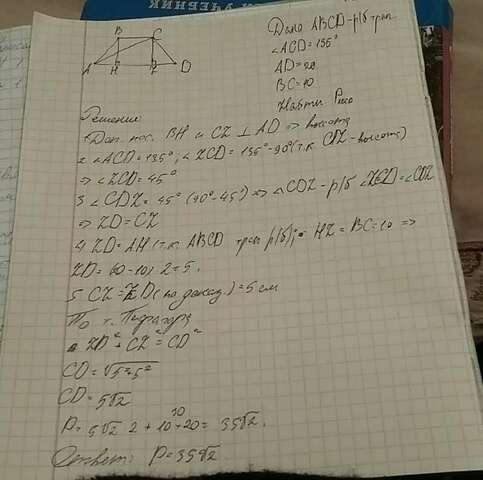 УЧЕБНИК
B C
A H Z D
Дано ABCD-р/б трап.
∠ACD=135°
AD=20
BC=10
Найти P
Решение
1 Доп. пос. BH и CZ ⊥ AD => высота
2 ∠ACD=135°, ∠ZCD=135°-90°(т.к. CZ-высота)
=> ∠ZCD=45°
3 ∠CDZ=45°(90°-45°) => △CDZ-р/б ∠ZCD=∠CDZ
=> ZD=CZ
4 ZD=AH (т.к. ABCD трап р/б), HZ=BC=10 =>
ZD= 10):2=5.
5 CZ=ZD(по доказ)=5 см
По т. Пифагора
ZD²+CZ²=CD²
CD=√5²+5²
CD=5√2
P=5√2 2+10+20=35√2.
10
Ответ: P=35√2